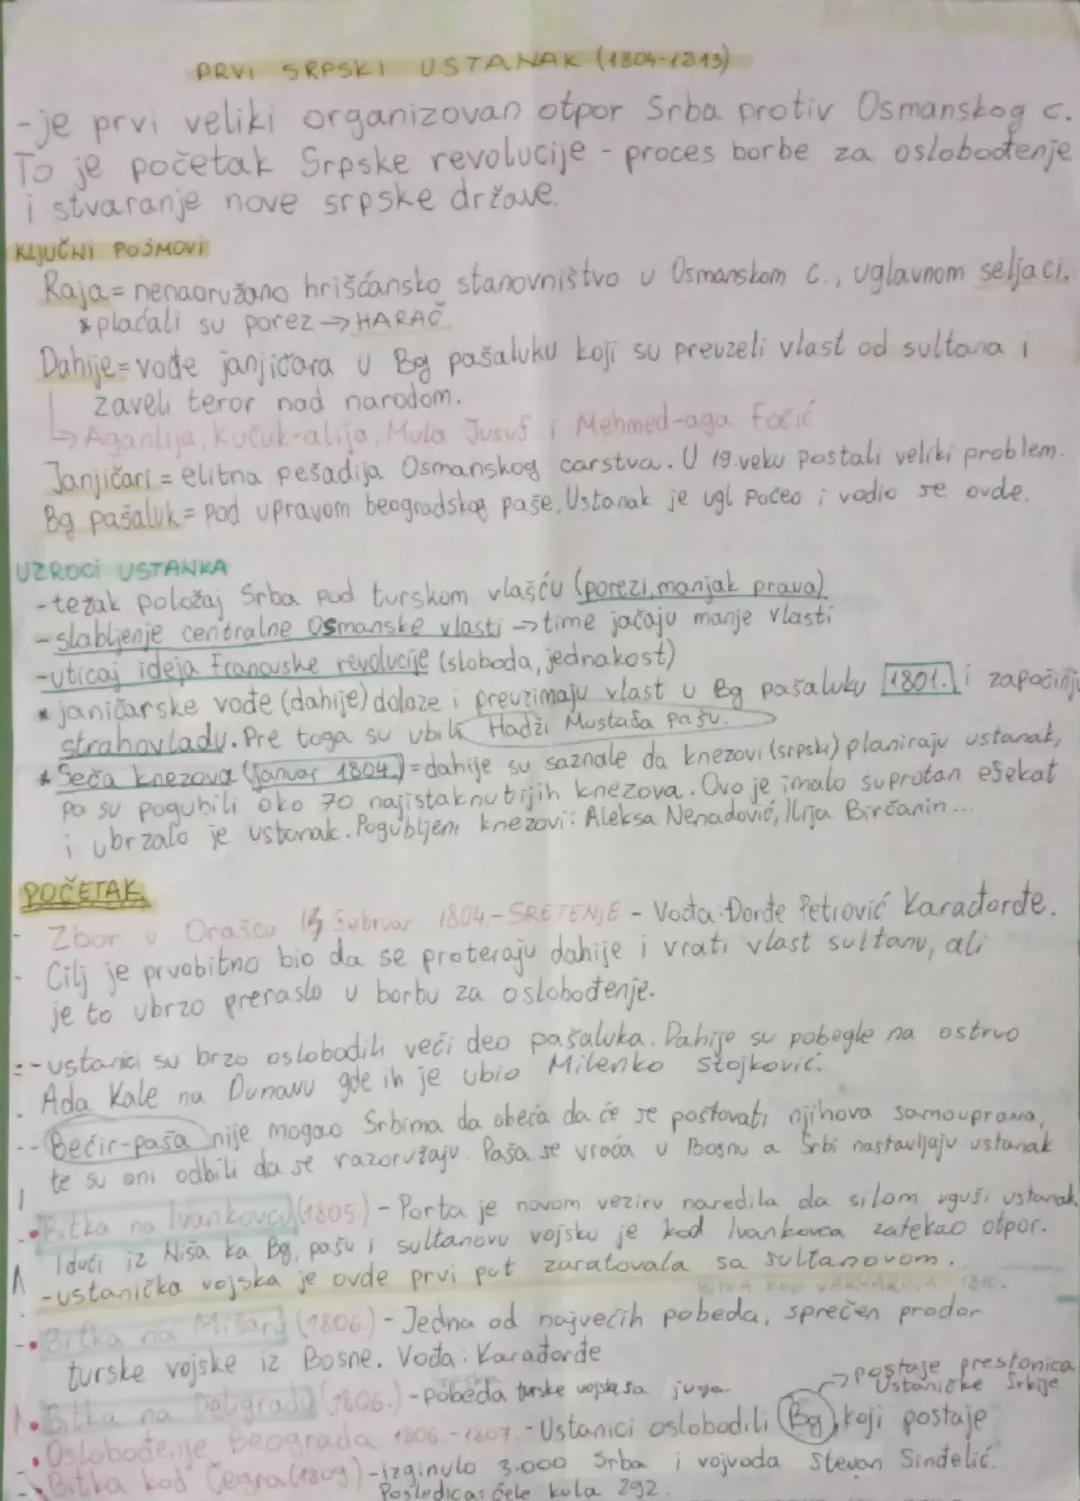 PRVI SRPSKI USTANAK (1804-1813)
-je prvi veliki organizovan otpor Srba protiv Osmanskog c.
To je početak Srpske revolucije - proces borbe za oslobođenje
i stvaranje nove srpske države.
KLJUČNI POJMOVI
Raja= nenaoružano hrišćansko stanovništvo u Osmanskom c., uglavnom seljaci.
*plaćali su porez → HARAČ
Dahije= vođe janjičara u Bg pašaluku koji su preuzeli vlast od sultana i
zaveli teror nad narodom.
↳ Aganlija, Kučuk-alija, Mula Jusuf i Mehmed-aga Fočić
Janjičari = elitna pešadija Osmanskog carstva. U 19.veku postali veliki problem.
Bg pašaluk= pod upravom beogradskog paše. Ustanak je ugl počeo i vodio se ovde.
UZROCI USTANKA
-težak položaj Srba pod turskom vlašću (porezi, manjak prava)
-slabljenje centralne Osmanske vlasti → time jačaju manje vlasti
-uticaj ideja Francuske revolucije (sloboda, jednakost)
* janičarske vođe (dahije) dolaze i preuzimaju vlast u Bg pašaluku 1801. i započinju
strahovladu. Pre toga su ubili Hadži Mustafa pašu.
* Seča knezova (Januar 1804.) = dahije su saznale da knezovi (srpski) planiraju ustanak,
pa su pogubili oko 70 najistaknutijih knezova. Ovo je imalo suprotan efekat
i ubrzalo je ustanak. Pogubljeni knezovi: Aleksa Nenadović, Ilija Birčanin...
POČETAK
- Zbor u Orašcu februar 1804.- SRETENJE - Vođa: Đorđe Petrović Karađorđe.
- Cilj je prvobitno bio da se proteraju dahije i vrati vlast sultanu, ali
je to ubrzo preraslo u borbu za oslobođenje.
-ustanici su brzo oslobodili veći deo pašaluka. Dahije su pobegle na ostrvo
Ada Kale na Dunavu gde ih je ubio Milenko Stojković.
- Bećir-paša nije mogao Srbima da obeća da će se poštovati njihova samouprava,
te su oni odbili da se razoružaju. Paša se vraća u Bosnu a Srbi nastavljaju ustanak
• Bitka na Ivankovcu (1805.) - Porta je novom veziru naredila da silom uguši ustanak.
Idući iz Niša ka Bg, pašu i sultanovu vojsku je kod Ivankovca zatekao otpor.
-ustanička vojska je ovde prvi put zaratovala sa sultanovom.
BITKA KOD VARVARINA 1810.
• Bitka na Mišaru (1806.) - Jedna od najvećih pobeda, sprečen prodor
turske vojske iz Bosne. Vođa: Karađorđe
• Bitka na Deligradu (1806.) - pobeda turske vojske sa juga
→ postaje prestonica
Ustaničke Srbije
• Oslobođenje Beograda 1806.-1807. - Ustanici oslobodili Bg, koji postaje
• Bitka kod Čegra (1809) - izginulo 3.000 Srba i vojvoda Stevan Sinđelić.
Posledica: ćele kula 292.